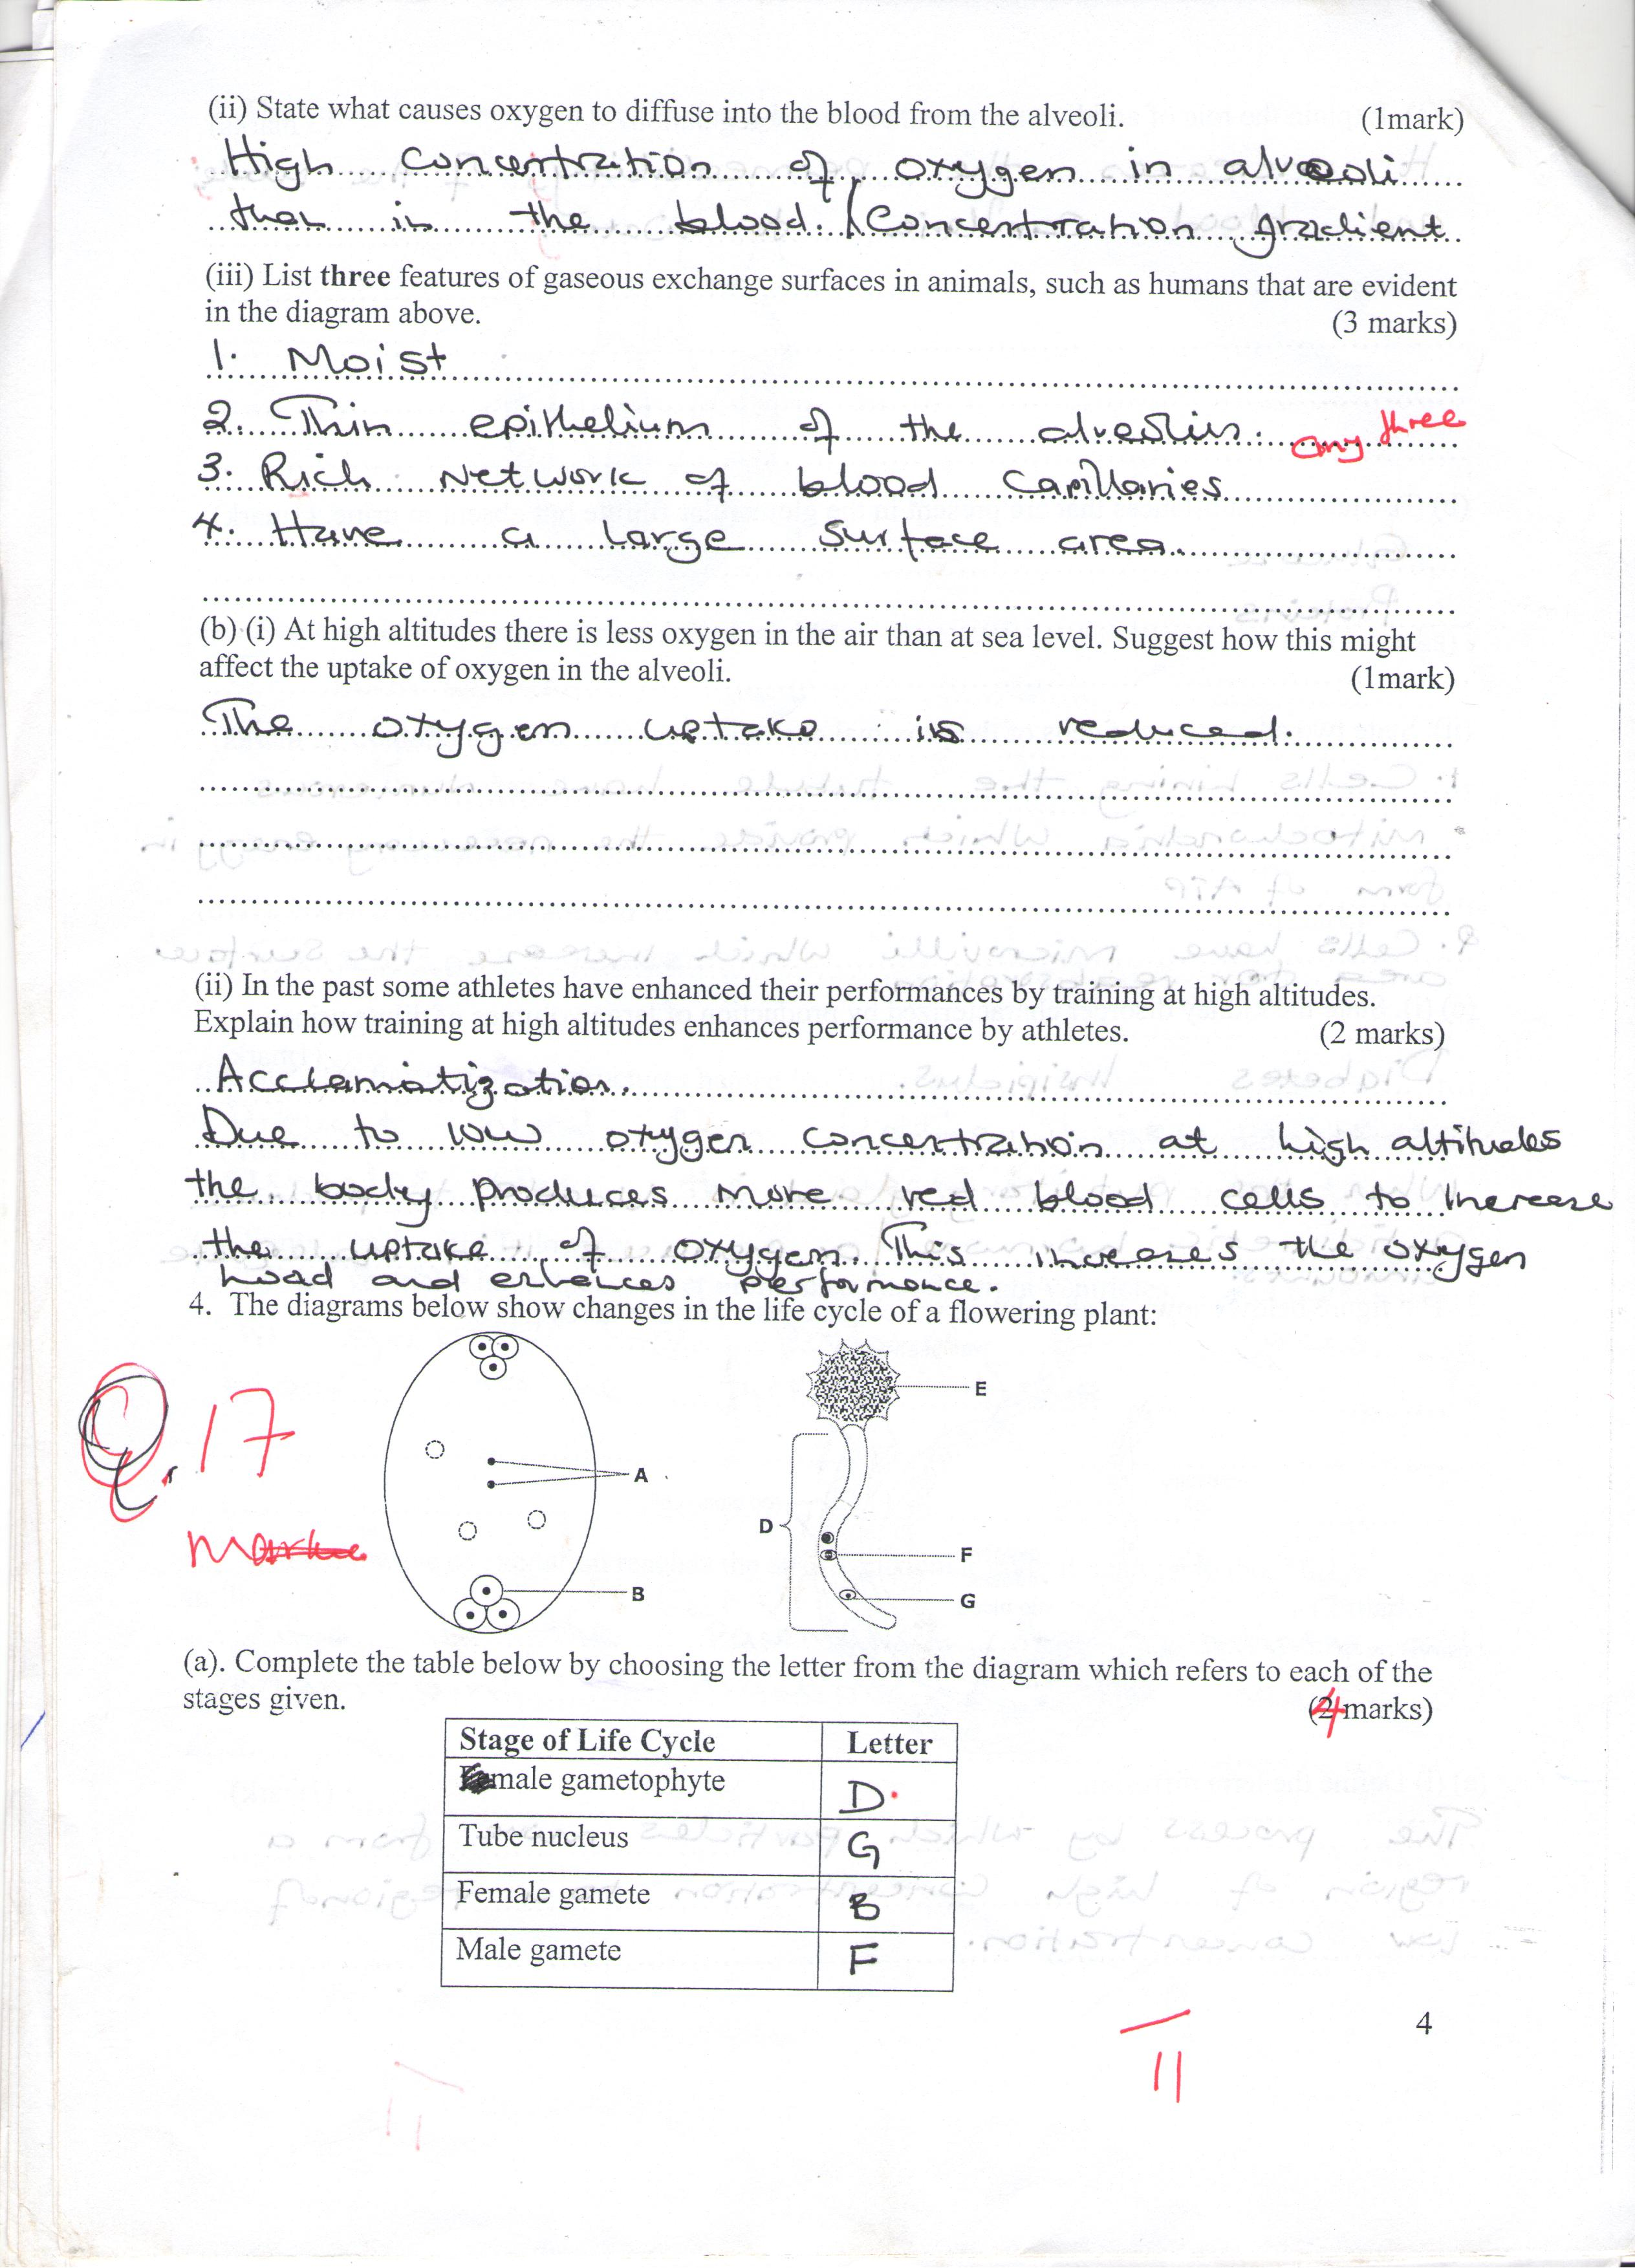 (ii) State what causes oxygen to diffuse into the blood from the alveoli. (1mark)
High concentration of oxygen in alveoli
than in the blood. / Concentration gradient
(iii) List three features of gaseous exchange surfaces in animals, such as humans that are evident
in the diagram above. (3 marks)
1. Moist
2. Thin epithelium of the alveolus. any three
3. Rich Network of blood capillaries
4. Have a large surface area.
(b) (i) At high altitudes there is less oxygen in the air than at sea level. Suggest how this might
affect the uptake of oxygen in the alveoli. (1mark)
The oxygen uptake is reduced.
(ii) In the past some athletes have enhanced their performances by training at high altitudes.
Explain how training at high altitudes enhances performance by athletes. (2 marks)
Acclamatization.
Due to low oxygen concentration at high altitudes
the body produces more red blood cells to increase
the uptake of oxygen. This increases the oxygen
load and enhances performance.
4. The diagrams below show changes in the life cycle of a flowering plant:
Q. 17
E
A
D
F
B
G
(a). Complete the table below by choosing the letter from the diagram which refers to each of the
stages given. (4 marks)
Stage of Life Cycle Letter
male gametophyte D
Tube nucleus G
Female gamete B
Male gamete F
4
11